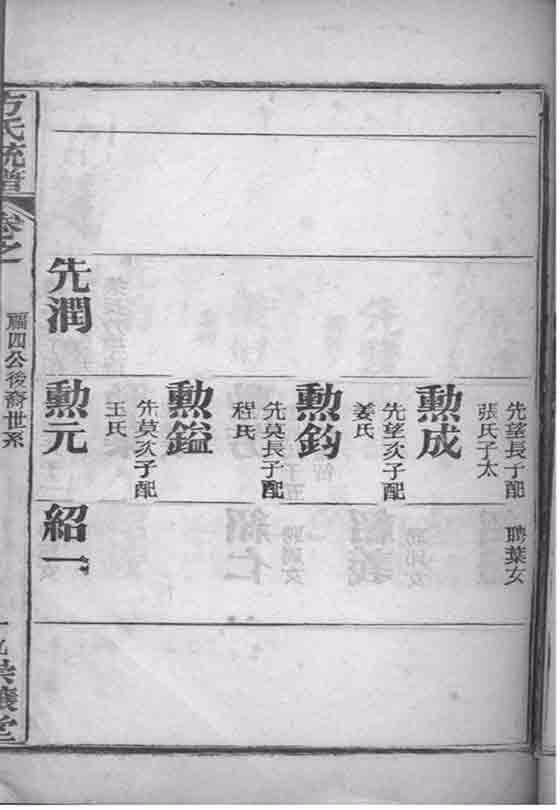 先望長子配
張氏子太
聘葉女
勳成
先望次子配
姜氏
勳鈞
先莫長子配
程氏
勳鎰
先莫次子配
王氏
先潤
勳元
紹一
方氏統譜
卷之
福四公後裔世系